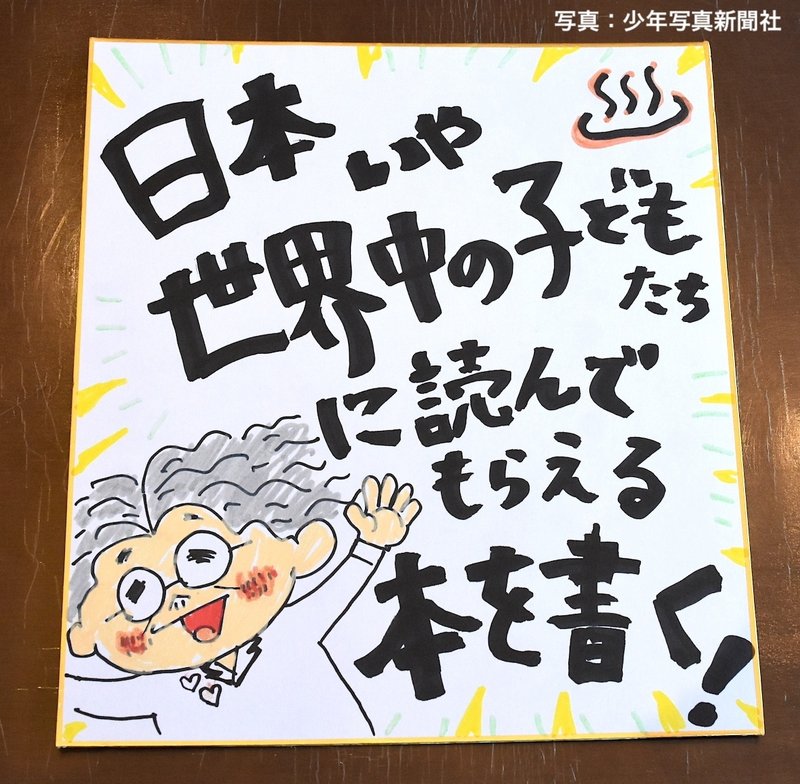 写真：少年写真新聞社
日本いや
世界中の子ども
たち
に読んで
もらえる
本を書く！